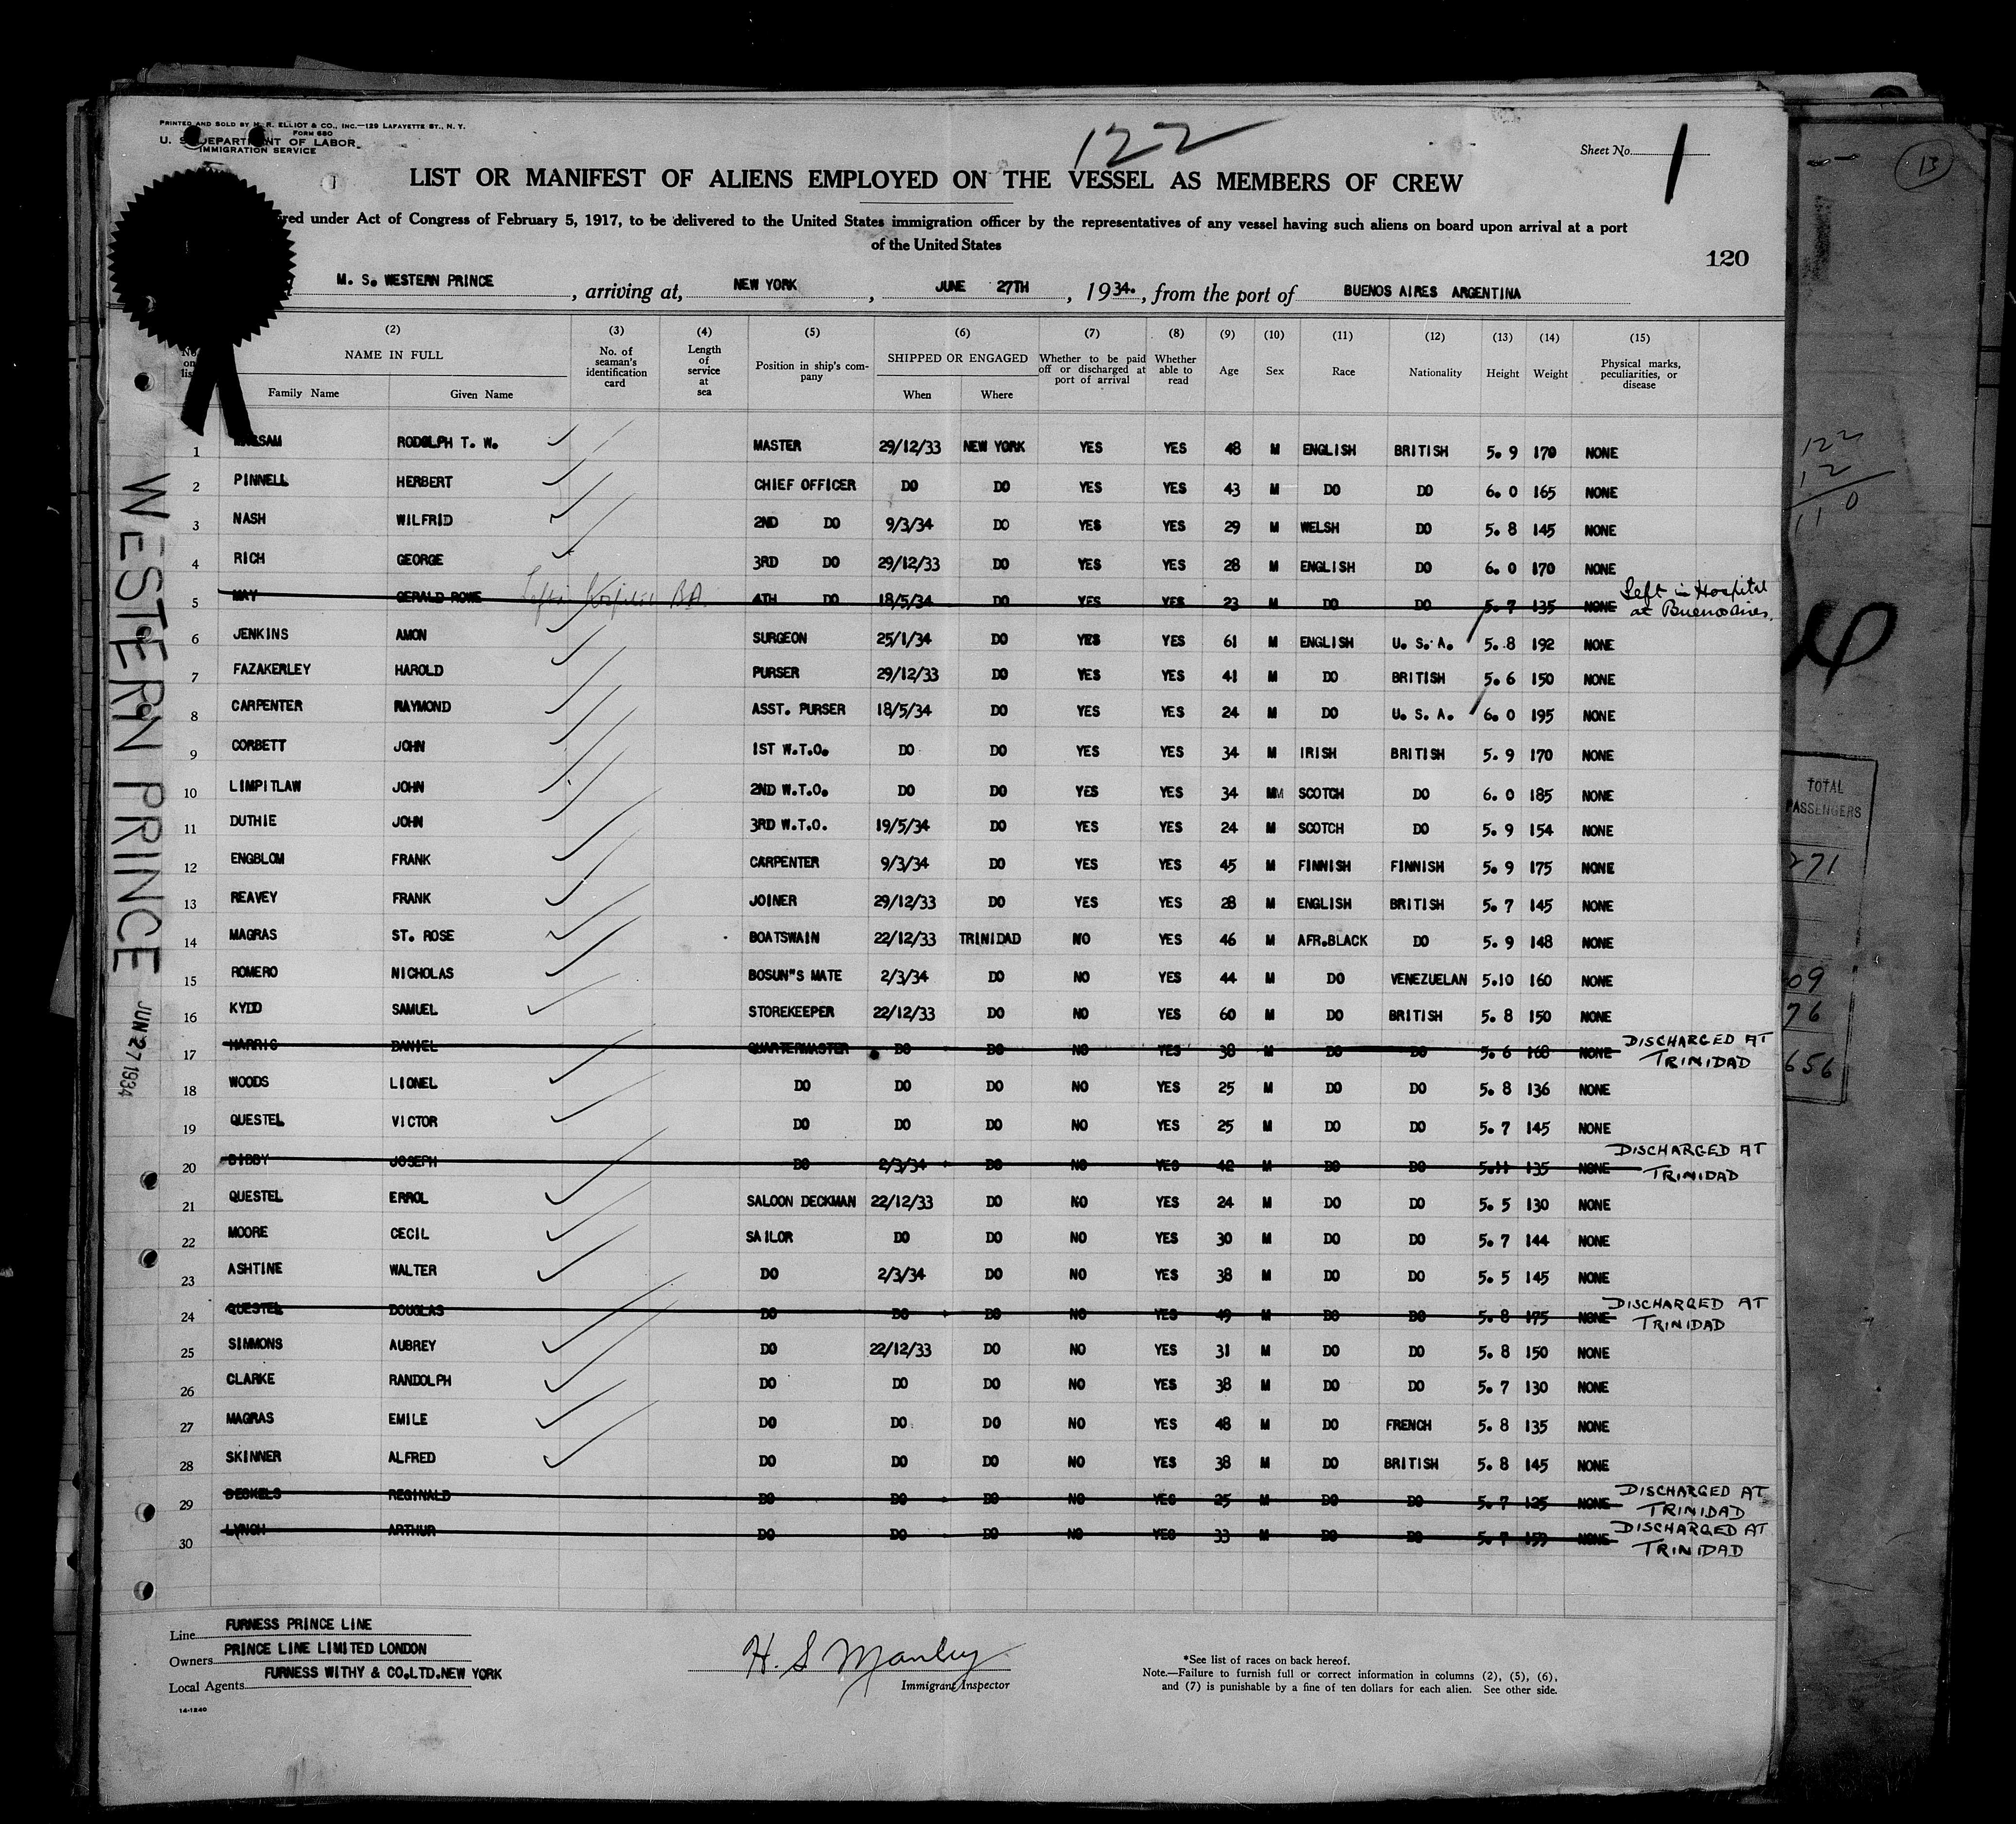 PRINTED AND SOLD BY R. ELLIOT & CO., INC.—129 LAFAYETTE ST., N. Y.
FORM 680
U. S. DEPARTMENT OF LABOR
IMMIGRATION SERVICE
122
Sheet No. 1
13
LIST OR MANIFEST OF ALIENS EMPLOYED ON THE VESSEL AS MEMBERS OF CREW
under Act of Congress of February 5, 1917, to be delivered to the United States immigration officer by the representatives of any vessel having such aliens on board upon arrival at a port
of the United States
120
M. S. WESTERN PRINCE , arriving at, NEW YORK , JUNE 27TH , 1934. , from the port of BUENOS AIRES ARGENTINA
(2) (3) (4) (5) (6) (7) (8) (9) (10) (11) (12) (13) (14) (15)
No. on list NAME IN FULL Family Name Given Name No. of seaman's identification card Length of service at sea Position in ship's company SHIPPED OR ENGAGED When Where Whether to be paid off or discharged at port of arrival Whether able to read Age Sex Race Nationality Height Weight Physical marks, peculiarities, or disease
1 RODOLPH T. W. MASTER 29/12/33 NEW YORK YES YES 48 M ENGLISH BRITISH 5. 9 170 NONE
2 PINNELL HERBERT CHIEF OFFICER DO DO YES YES 43 M DO DO 6. 0 165 NONE
3 NASH WILFRID 2ND DO 9/3/34 DO YES YES 29 M WELSH DO 5. 8 145 NONE
4 RICH GEORGE 3RD DO 29/12/33 DO YES YES 28 M ENGLISH DO 6. 0 170 NONE
5 MAY GERALD ROWE Left in Hospital B.A. 4TH DO 18/5/34 DO YES YES 23 M DO DO 5. 7 135 NONE Left in Hospital at Buenos Aires.
6 JENKINS AMON SURGEON 25/1/34 DO YES YES 61 M ENGLISH U. S. A. 5. 8 192 NONE
7 FAZAKERLEY HAROLD PURSER 29/12/33 DO YES YES 41 M DO BRITISH 5. 6 150 NONE
8 CARPENTER RAYMOND ASST. PURSER 18/5/34 DO YES YES 24 M DO U. S. A. 6. 0 195 NONE
9 CORBETT JOHN 1ST W.T.O. DO DO YES YES 34 M IRISH BRITISH 5. 9 170 NONE
10 LIMPITLAW JOHN 2ND W.T.O. DO DO YES YES 34 MM SCOTCH DO 6. 0 185 NONE
11 DUTHIE JOHN 3RD W.T.O. 19/5/34 DO YES YES 24 M SCOTCH DO 5. 9 154 NONE
12 ENGBLOM FRANK CARPENTER 9/3/34 DO YES YES 45 M FINNISH FINNISH 5. 9 175 NONE
13 REAVEY FRANK JOINER 29/12/33 DO YES YES 28 M ENGLISH BRITISH 5. 7 145 NONE
14 MAGRAS ST. ROSE BOATSWAIN 22/12/33 TRINIDAD NO YES 46 M AFR.BLACK DO 5. 9 148 NONE
15 ROMERO NICHOLAS BOSUN"S MATE 2/3/34 DO NO YES 44 M DO VENEZUELAN 5.10 160 NONE
16 KYDD SAMUEL STOREKEEPER 22/12/33 DO NO YES 60 M DO BRITISH 5. 8 150 NONE
17 HARRIS DANIEL QUARTERMASTER DO DO NO YES 38 M DO DO 5. 6 168 NONE DISCHARGED AT TRINIDAD
18 WOODS LIONEL DO DO DO NO YES 25 M DO DO 5. 8 136 NONE
19 QUESTEL VICTOR DO DO DO NO YES 25 M DO DO 5. 7 145 NONE
20 BIBBY JOSEPH DO 2/3/34 DO NO YES 42 M DO DO 5.11 135 NONE DISCHARGED AT TRINIDAD
21 QUESTEL ERROL SALOON DECKMAN 22/12/33 DO NO YES 24 M DO DO 5. 5 130 NONE
22 MOORE CECIL SAILOR DO DO NO YES 30 M DO DO 5. 7 144 NONE
23 ASHTINE WALTER DO 2/3/34 DO NO YES 38 M DO DO 5. 5 145 NONE
24 QUESTEL DOUGLAS DO DO DO NO YES 49 M DO DO 5. 8 175 NONE DISCHARGED AT TRINIDAD
25 SIMMONS AUBREY DO 22/12/33 DO NO YES 31 M DO DO 5. 8 150 NONE
26 CLARKE RANDOLPH DO DO DO NO YES 38 M DO DO 5. 7 130 NONE
27 MAGRAS EMILE DO DO DO NO YES 48 M DO FRENCH 5. 8 135 NONE
28 SKINNER ALFRED DO DO DO NO YES 38 M DO BRITISH 5. 8 145 NONE
29 REGINALD DO DO DO NO YES 25 M DO DO 5. 7 125 NONE DISCHARGED AT TRINIDAD
30 LYNCH ARTHUR DO DO DO NO YES 33 M DO DO 5. 7 159 NONE DISCHARGED AT TRINIDAD
WESTERN PRINCE
JUN 27 1934
Line FURNESS PRINCE LINE
Owners PRINCE LINE LIMITED LONDON
Local Agents FURNESS WITHY & CO.LTD.NEW YORK
14-1240
H. S Manley
Immigrant Inspector
*See list of races on back hereof.
Note.—Failure to furnish full or correct information in columns (2), (5), (6),
and (7) is punishable by a fine of ten dollars for each alien. See other side.
122
12
110
TOTAL
PASSENGERS
271
09
76
656